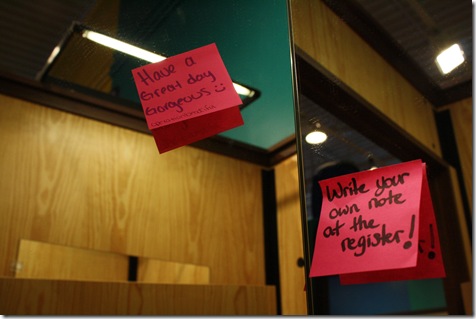 Have a
Great day
Gorgeous :)
Write your
own note
at the
register!